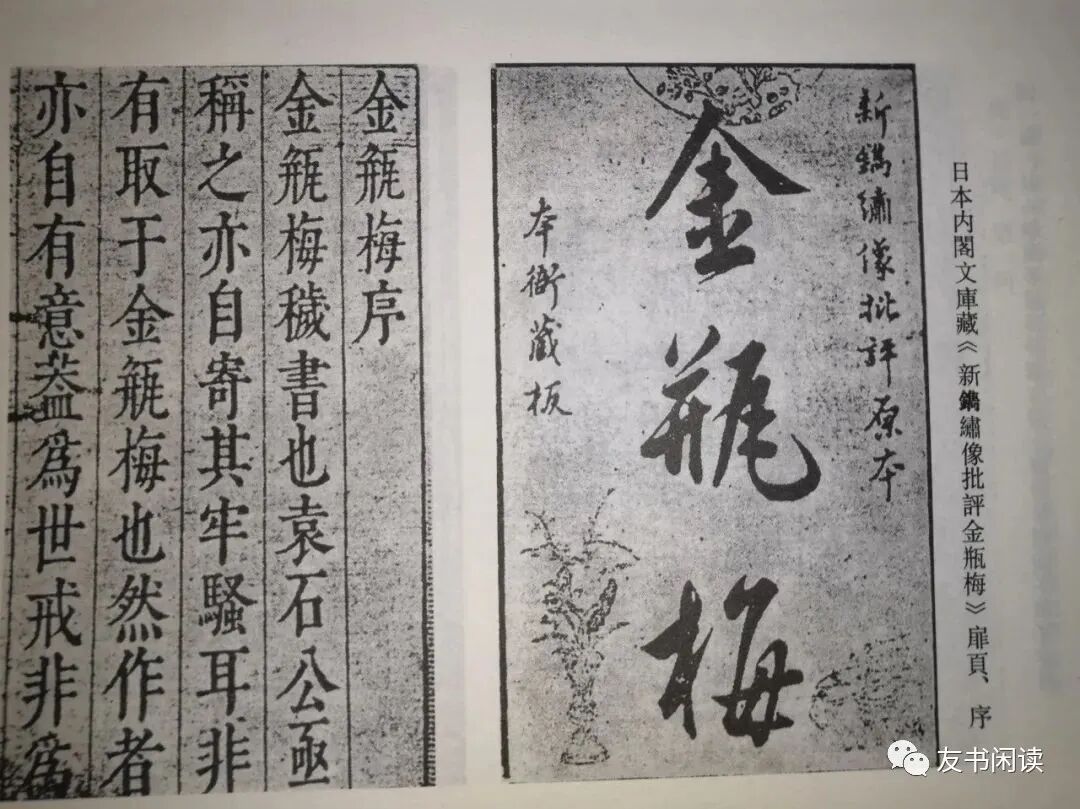 日本内閣文庫藏《新鐫繡像批評金瓶梅》扉頁、序
新鐫繡像批評原本
金瓶梅
本衙藏板
金瓶梅序
金瓶梅穢書也袁石公亟
稱之亦自寄其牢騷耳非
有取于金瓶梅也然作者
亦自有意葢爲世戒非爲
友书闲读